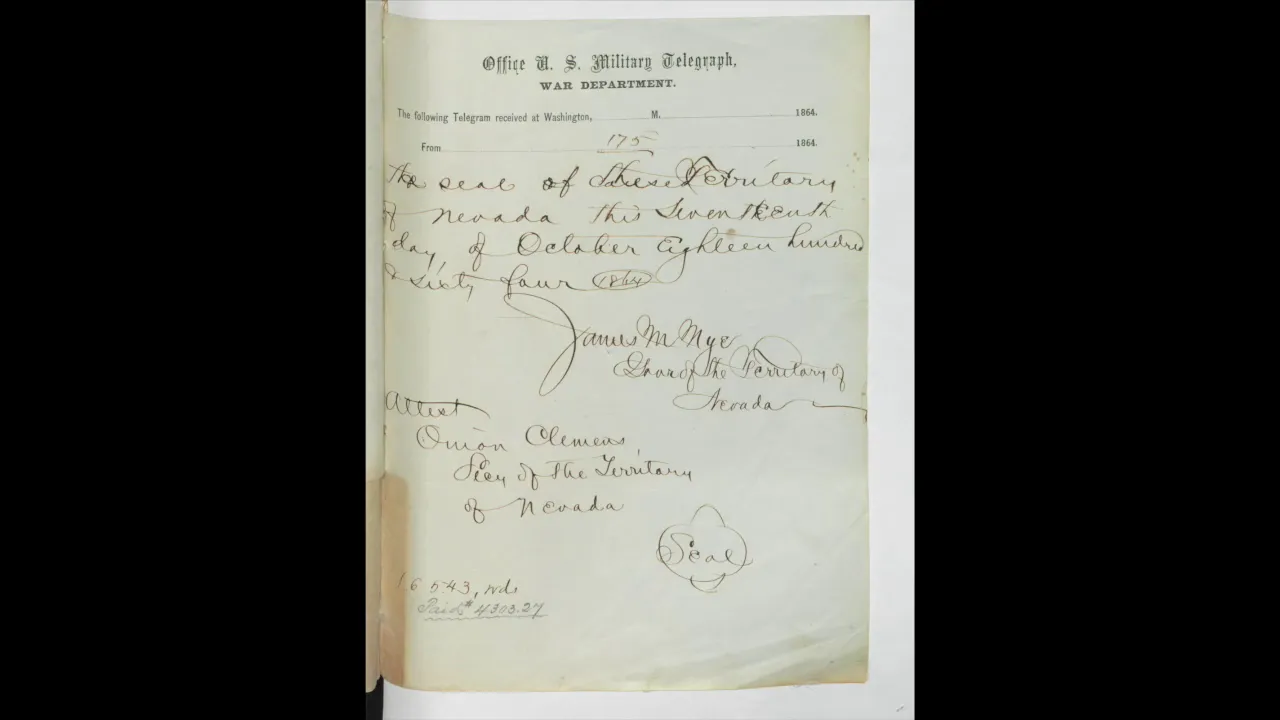 Office U. S. Military Telegraph,
WAR DEPARTMENT.
The following Telegram received at Washington, M. 1864.
From 175 1864.
The seal of the Territory
of Nevada this Seventeenth
day, of October Eighteen hundred
& sixty four 1864
James W Nye
Govr of the Territory of
Nevada
Attest
Orion Clemens,
Secy of the Territory
of Nevada
Seal
16543, wds
Paid $4303.27